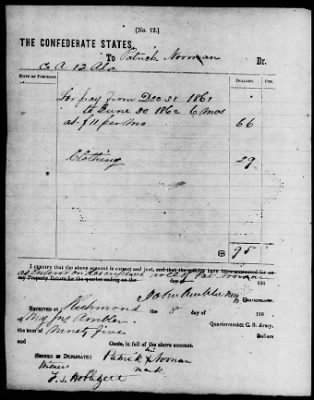 [No. 12.]
THE CONFEDERATE STATES,
To Patrick Noonan Dr.
Co A 12 Ala
DATE OF PURCHASE. DOLLARS. CTS.
For pay from Dec 31 1861
to June 30 1862 6 mos
at $11 per mo 66
Clothing 29
$ 95
I CERTIFY that the above account is correct and just, and that the articles have been accounted for on
my Property Return for the quarter ending on the day of 186
as indorsed on descriptive roll of Pat Noonan
John Ambler Maj
Quartermaster.
RECEIVED at Richmond the 8 day of 186
of Maj Jno Ambler Quartermaster C. S. Army,
the sum of Ninety five Dollars
and Cents, in full of the above account.
(SIGNED IN DUPLICATE.) Patrick X Noonan
his
mark
Witness